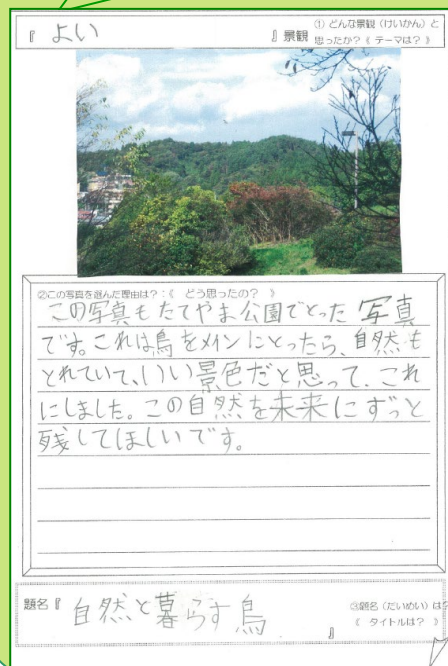 『 よい 』景観
① どんな景観（けいかん）と
思ったか？《 テーマは？ 》
②この写真を選んだ理由は？：《 どう思ったの？ 》
この写真もたてやま公園でとった写真
です。これは鳥をメインにとったら、自然も
とれていて、いい景色だと思って、これ
にしました。この自然を未来にずっと
残してほしいです。
題名『 自然と暮らす鳥 』
③題名（だいめい）は？
《 タイトルは？ 》